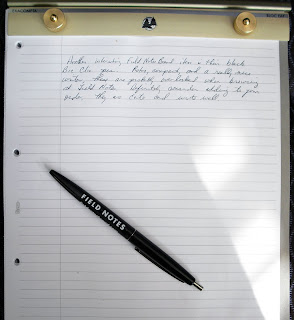 Another interesting Field Notes Brand item is their black
Bic Clic pen. Retro, compact, and a really nice
writer, these are probably overlooked when browsing
at Field Notes. Definitely consider adding to your
order. They are cute and write well.
FIELD NOTES